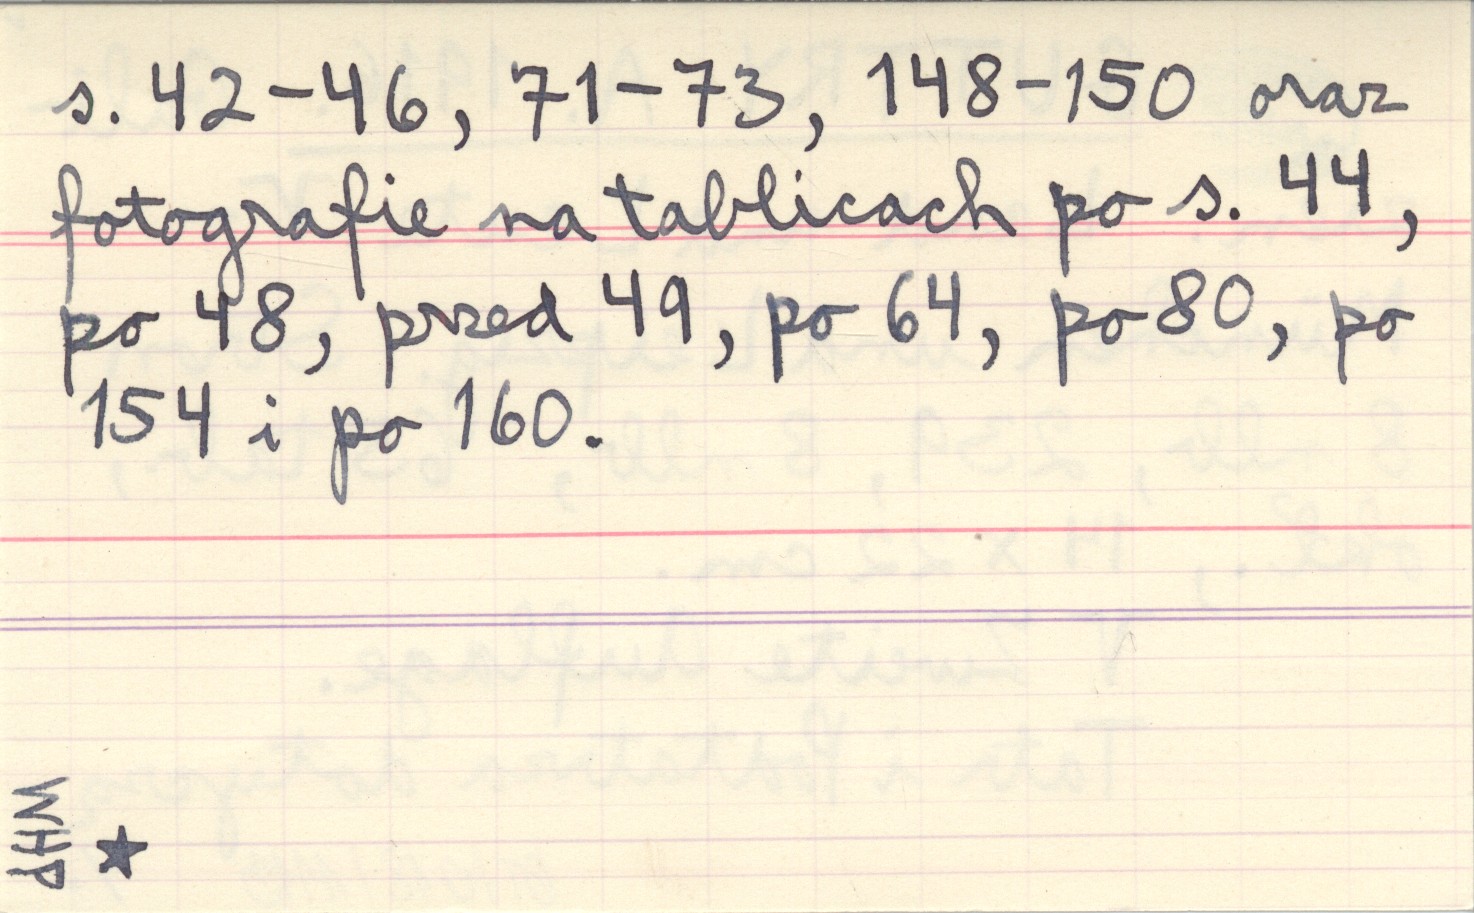 s. 42-46, 71-73, 148-150 oraz
fotografie na tablicach po s. 44,
po 48, przed 49, po 64, po 80, po
154 i po 160.
WHP